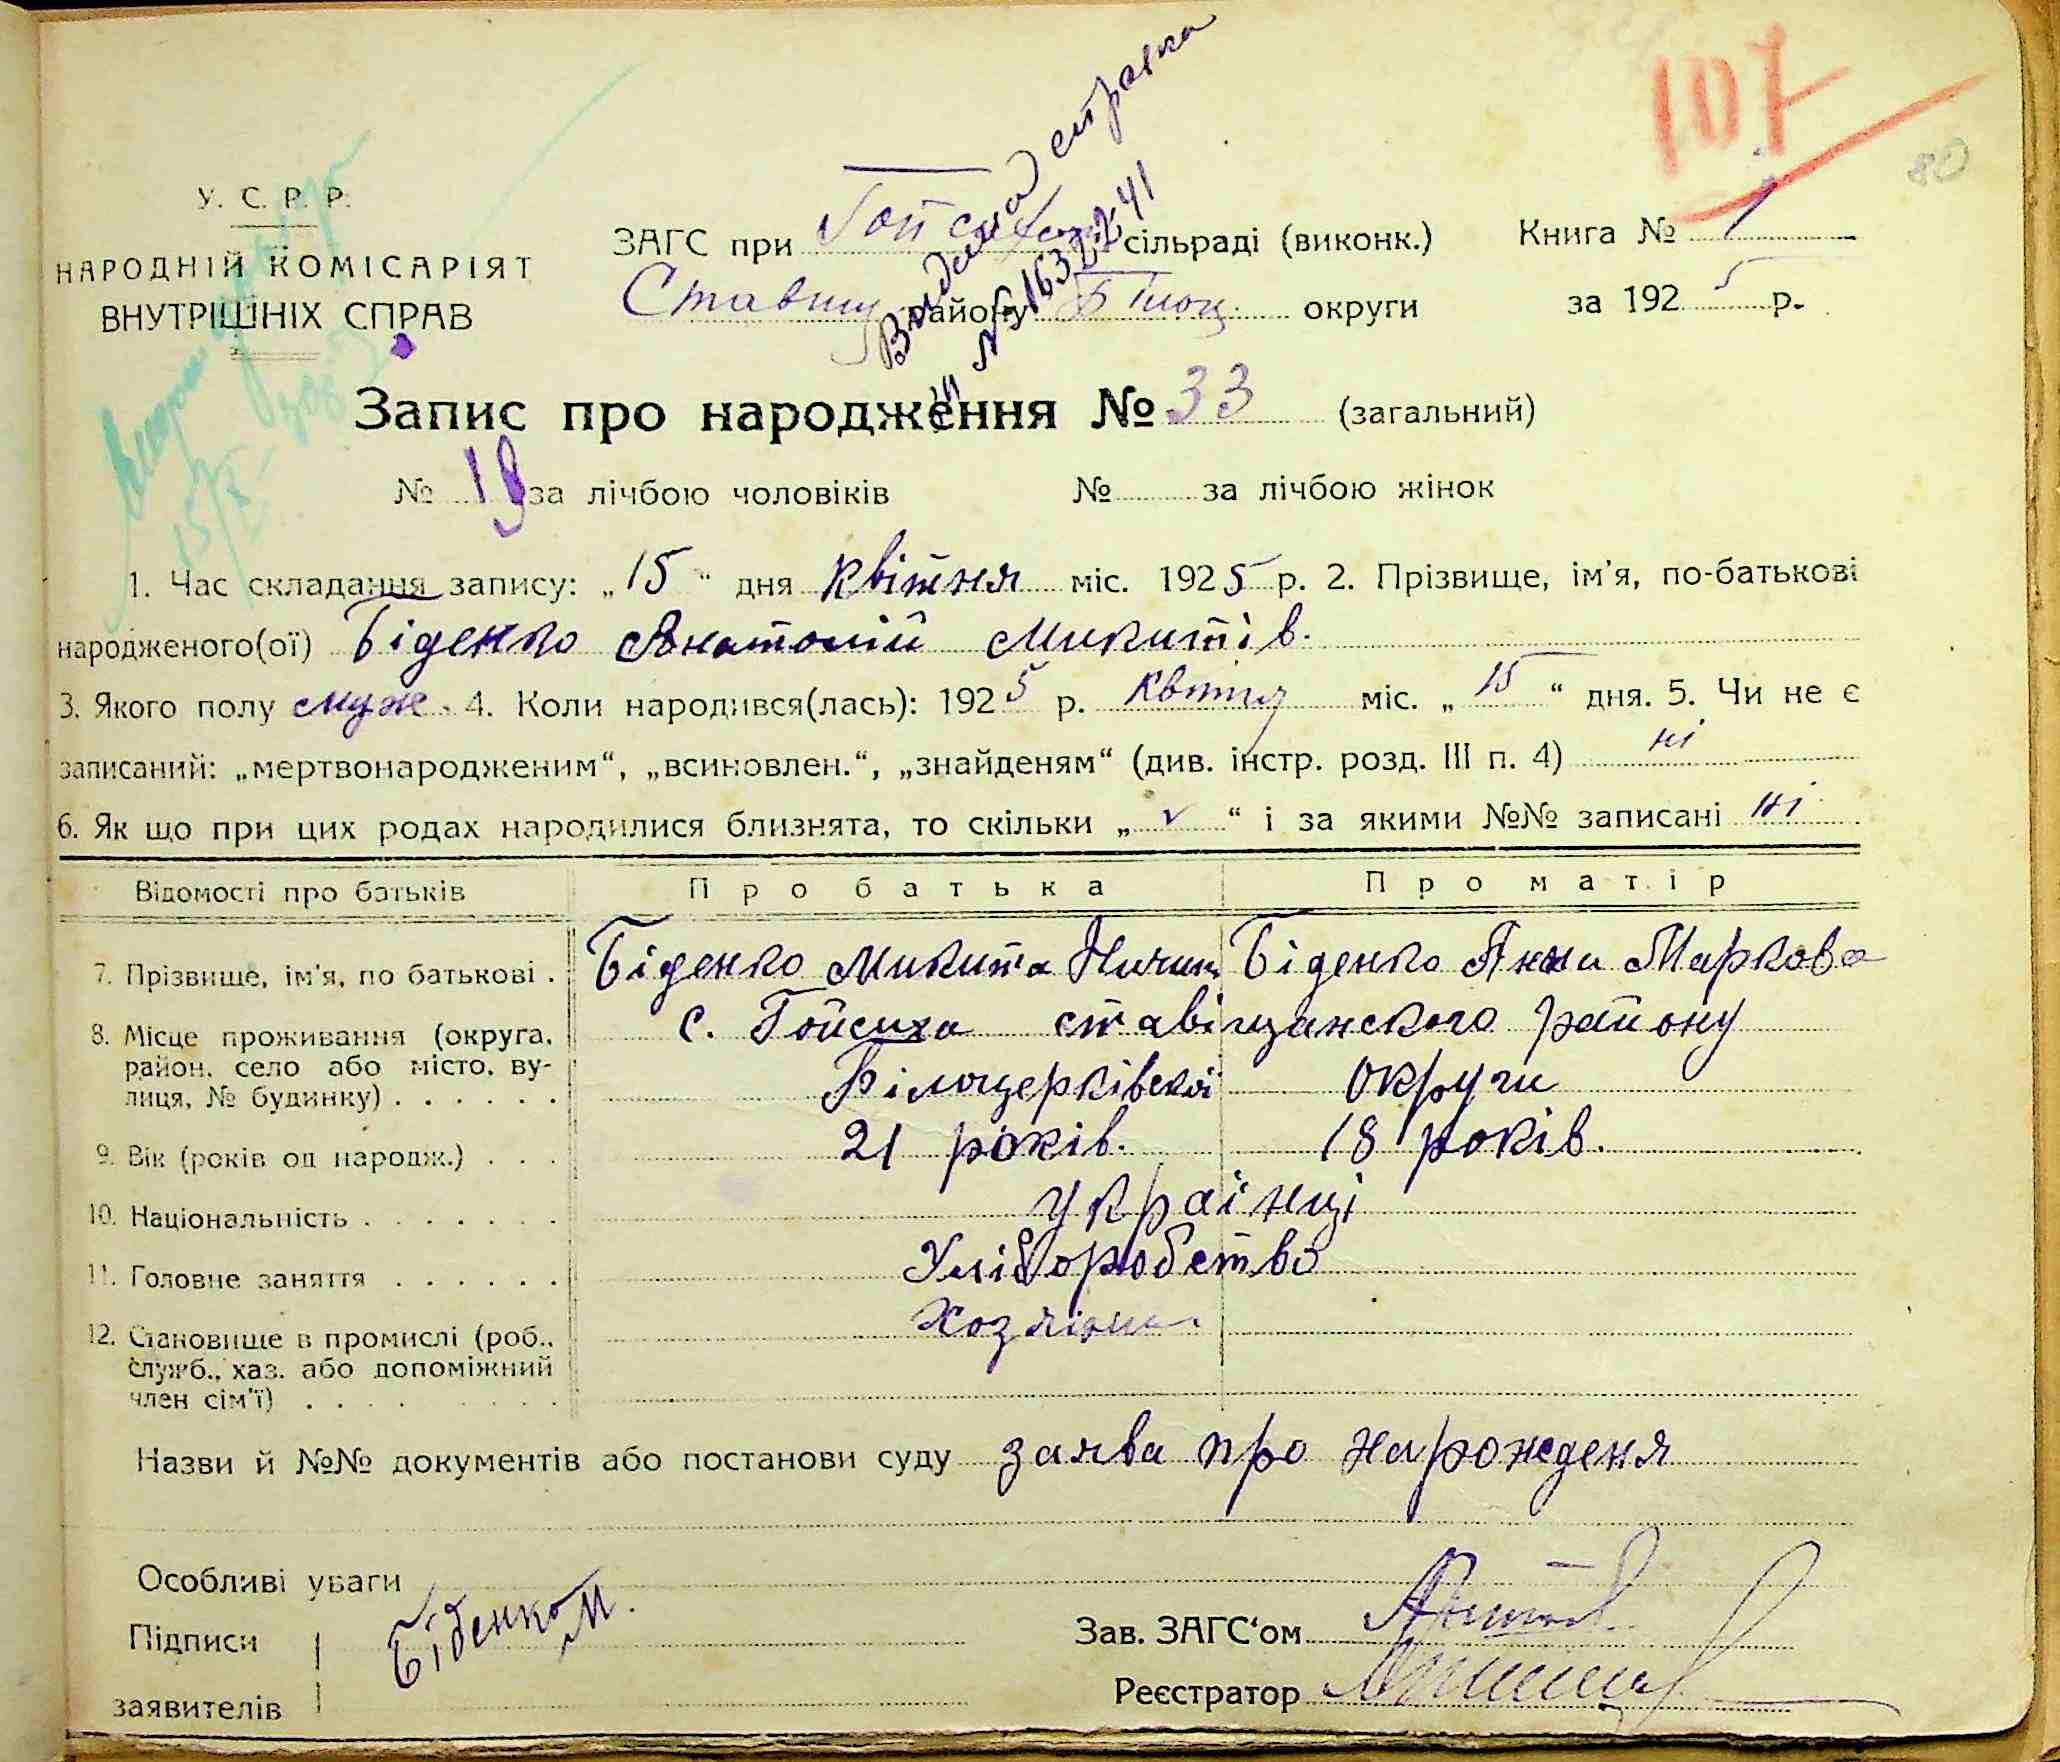 107
80
Видана справка
№ 163 22-2-41
У. С. Р. Р.
НАРОДНІЙ КОМІСАРІЯТ
ВНУТРІШНІХ СПРАВ
ЗАГС при Гойсиськ сільраді (виконк.)
Ставищ району БТоц округи
Книга № 1
за 1925 р.
Запис про народження № 33 (загальний)
№ 19 за лічбою чоловіків № за лічбою жінок
1. Час складання запису: „15“ дня квітня міс. 1925 р. 2. Прізвище, ім'я, по-батькові
народженого(ої) Біденко Анатолій Микитів.
3. Якого полу муж. 4. Коли народився(лась): 1925 р. Квітня міс. „15“ дня. 5. Чи не є
записаний: „мертвонародженим“, „всиновлен.“, „знайденям“ (див. інстр. розд. III п. 4) ні
6. Як що при цих родах народилися близнята, то скільки „ v “ і за якими №№ записані ні
Відомості про батьків Про батька Про матір
7. Прізвище, ім'я, по батькові . Біденко Микита Біденко Анна Маркова
8. Місце проживання (округа, с. Гойсиха ставіщанского району
район, село або місто, ву-
лиця, № будинку) . . . . . . Білоцерківскої округи
9. Вік (років од народж.) . . . 21 років. 18 років.
10. Національність . . . . . . . українці
11. Головне заняття . . . . . . Хліборобство
12. Становище в промислі (роб., Хозяїни
служб., хаз. або допоміжний
член сім'ї) . . . . . . . .
Назви й №№ документів або постанови суду заява про нарожденя
Особливі уваги
Підписи Біденко М.
заявителів
Зав. ЗАГС'ом
Реєстратор